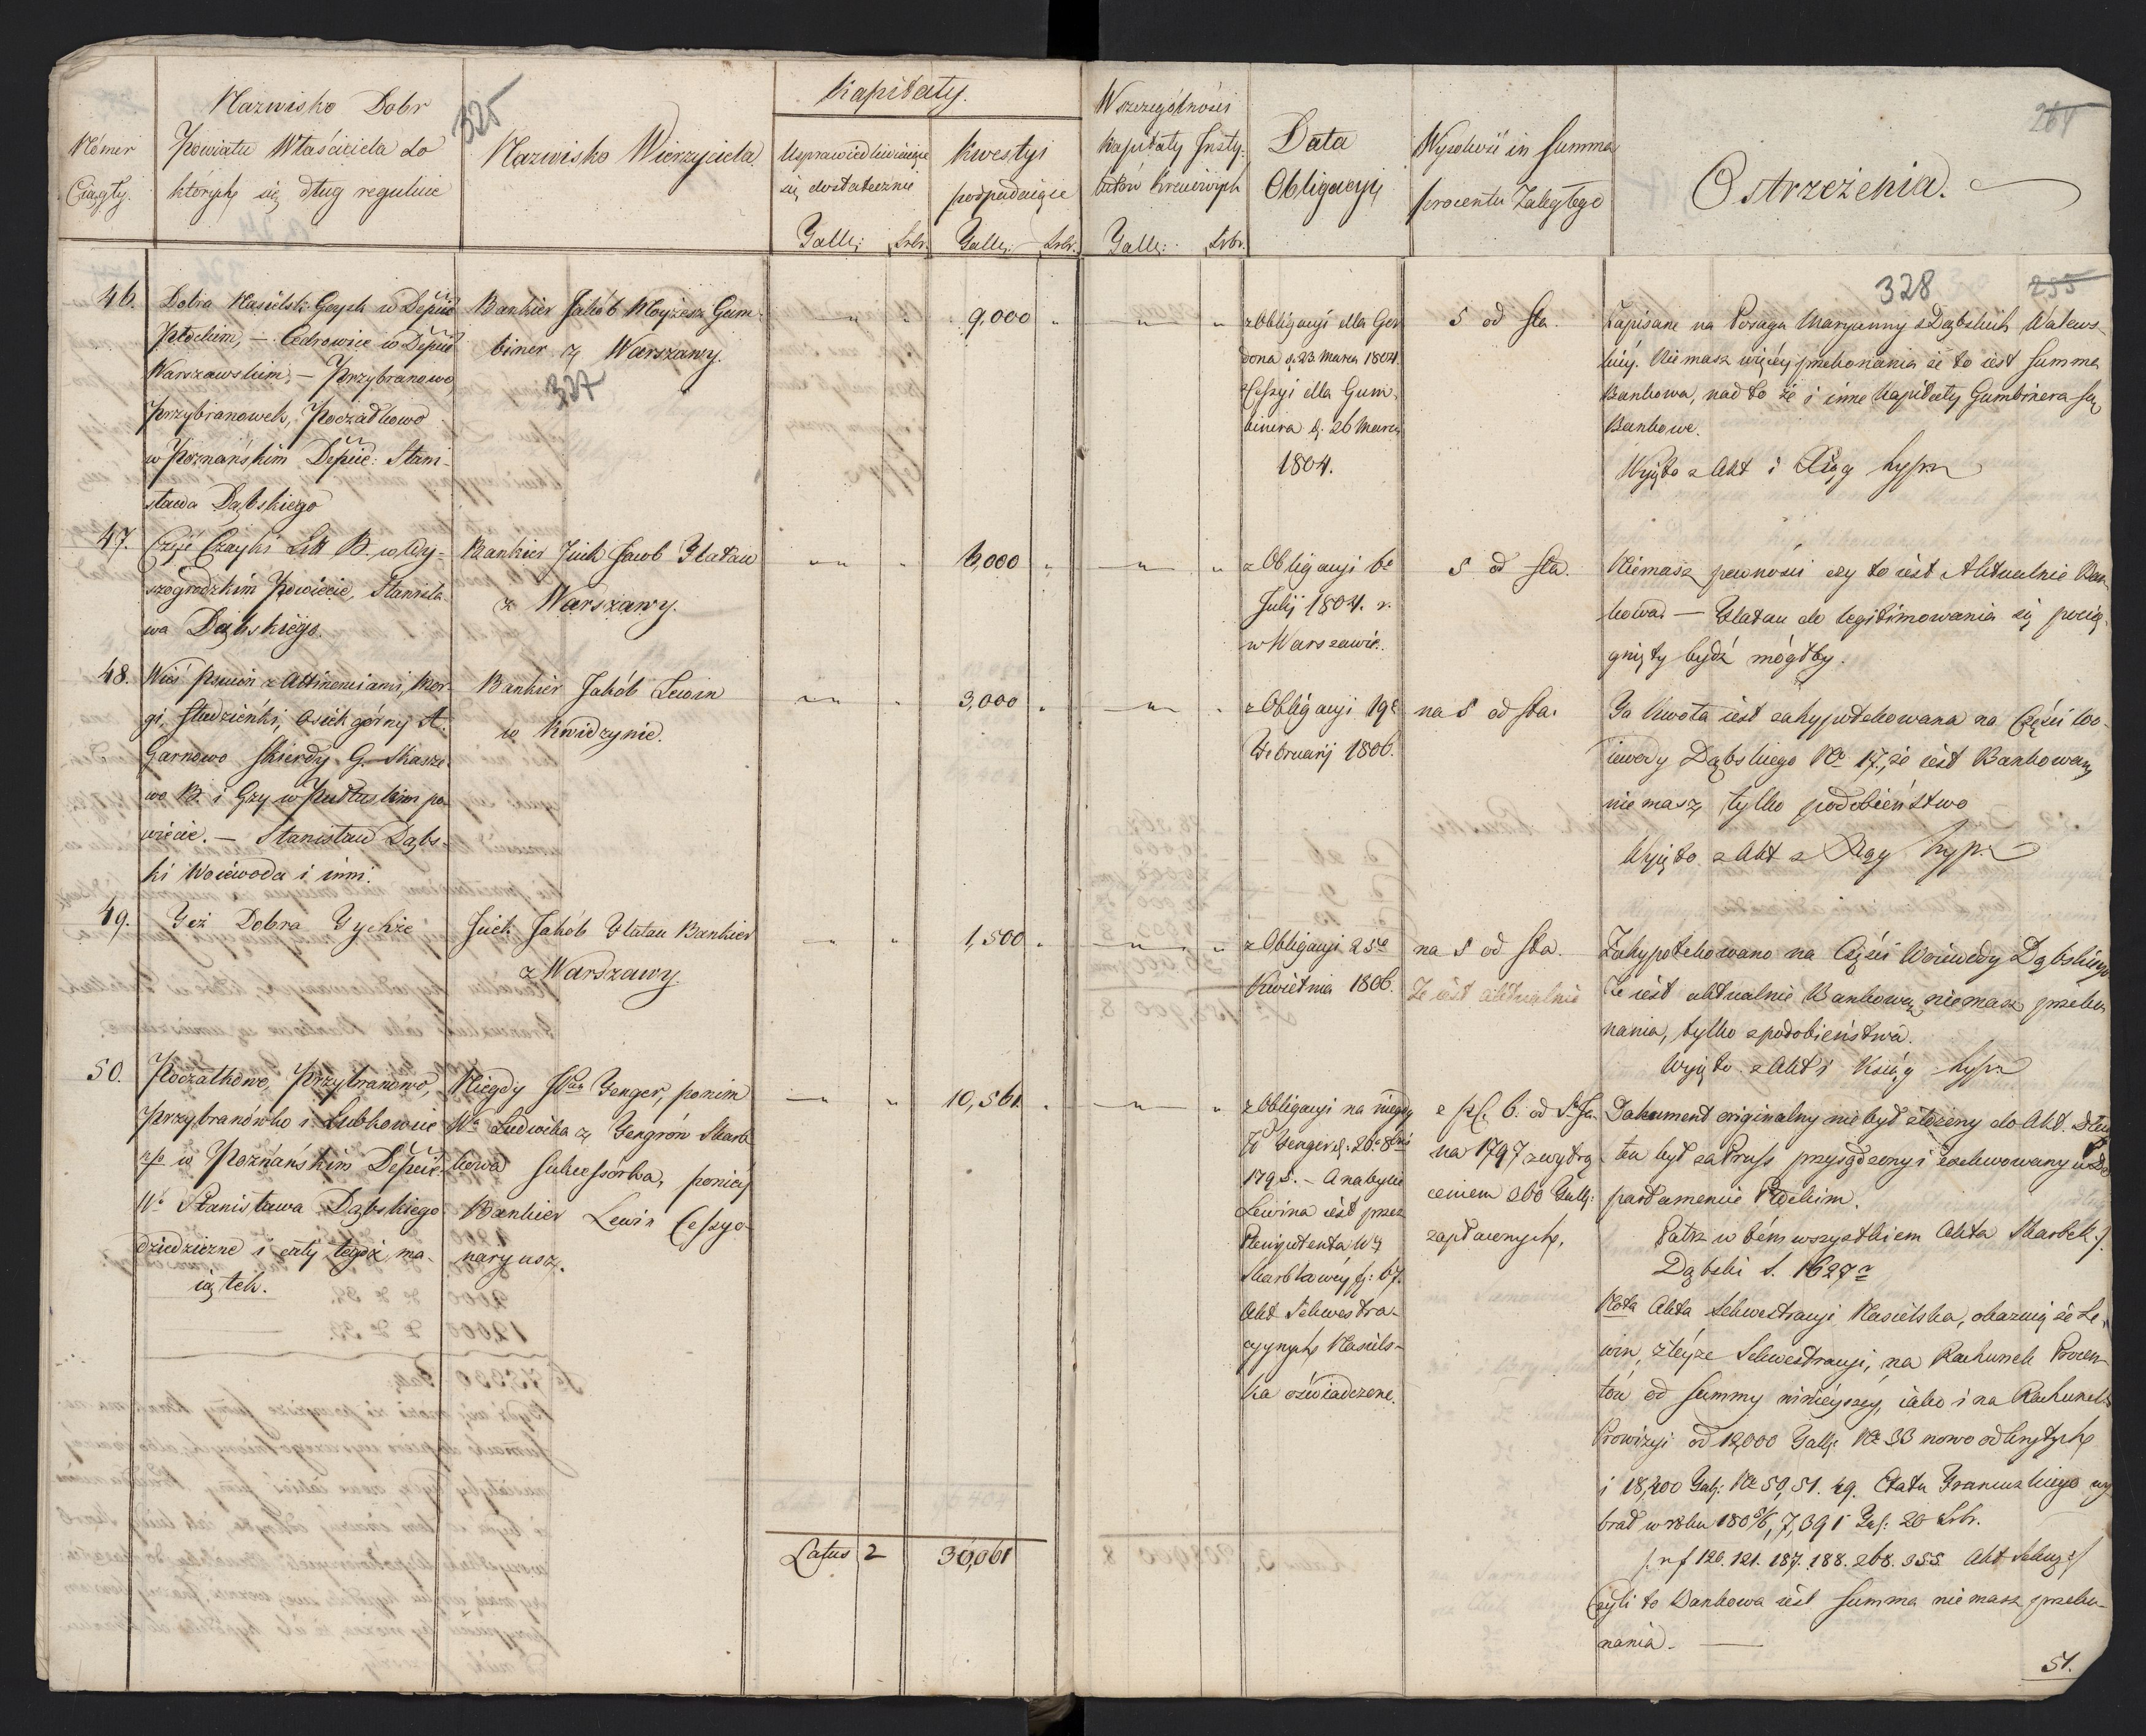 Nómer
Ciągły.
Nazwisko Dobr
Powiatu Właściciela do
których się dług reguluie
325
Nazwisko Wierzyciela
Kapitały.
Usprawiedliwiaiące
się dostatecznie
Tall: Srbr.
Kwestyi
podpadaiące
Tall: Srbr.
W szczególności
Kapitały Insty-
tutów
Tall: Srbr.
Data
Obligacyi
Wysokość in Summa
procentu Zaległego
Ostrzeżenia.
264
46.
Dobra Nasielsk Gcych w Depcie
Płockim, — Cedrowice w Depcie
Warszawskim, — Przybranowo,
Przybranowek, Poczałkowo
w Poznańskim Depcie: Stani-
sława Dąbskiego
Bankier Jakób Moyżesz Gum-
biner z Warszawy.
327
9,000
z Obligacyi dla Gor
dona d. 23 Marca 1804.
z Cessyi dla Gum-
binera d. 26 Marca
1804.
5 od sta.
328 255
Zapisane na Posagu Maryanny z Dąbskich Walews-
kiéy. Nie masz więcéy przekonania że to iest Summa
Bankowa, nad to że i inne Kapitały Gumbinera są
Bankowe.
Wyięto z Akt i Xiąg hypn
47.
Część Czayki Litt B. w Wy-
szogrodzkim Powiecie, Stanisła-
wa Dąbskiégo.
Bankier Juck Jacob Flatau
z Warszawy.
6,000
z Obligacyi 6e
Julij 1804. r.
w Warszawie.
5 od sta.
Niemasz pewności czy to iest Aktualnie Ban-
kowa. — Flatau do legitimowania się pocią-
gnięty bydź mógłby.
48.
Wieś Psucin z Attinenciami, Mor-
gi, Studzieńki, Osiek górny A.
Garnowo Skierdy G. Skasze-
wo B. i Gzy w Pułtuskim po-
wiecie. — Stanisław Dąbs-
ki Woiéwoda i inni.
Bankier Jakób Lewin
w Kwidzynie.
3,000
z Obligacyi 19e
Februarij 1806.
na 5 od sta.
Ta Kwota iest zahypotekowana na Części Wo-
iewody Dąbskiego No 17., że iest Bankową
nie masz tylko podobieństwo
Wyięto z Akt z Xiąg hypn
49.
Też Dobra Tychże
Juck Jakób Flatau Bankier
z Warszawy
1,500
z Obligacyi 25e
Kwietnia 1806.
na 5 od sta.
Że iest aktualnie
Zahypotekowano na Części Woiewody Dąbskiego
Że iest aktualnie Bankową niemasz przeko-
nania, tylko z podobieństwa.
Wyięto z Akt i Xsiąg hypn
50.
Poczałkowo, Przybranowo,
Przybranówko i Lubkowice
w Poznańskim Depcie.
Wo Stanisława Dąbskiego
dziedziczne i cały tegoż ma-
iątek.
Niegdy Genger, ponim
Wa Ludwika z Gengrów Skarb-
kowa Sukcessorka, poniey
Bankier Lewin Cessyo-
naryusz.
10,561
z Obligacyi na niegdy
Genger d. 20
1795. — A nabycie
Lewina iest przez
Plenipotenta Wy
Skarbkowéy f: 67.
Akt Sekwestra-
cyynych Nasiels-
ka oświadczone.
6. od
na 1797 z wytrą-
ceniem 260 Tall:
zapłaconych.
Dokument originalny nie był złożony do Akt. Dług
ten był za Pruss przysądzony i exekwowany w De-
partamencie Płockim.
Patrz w tém wszystkiem Akta Skarbek
Dąbski S. 1627
Nota Akta Sekwestracyi Nasielska, okazuią że Le-
win, z téyże Sekwestracyi, na Rachunek Procen-
tów od Summy ninieyszey, iako i na Rachunek
Prowizyi od 12,000 Tall: No 33 nowo odkrytych
i 18,200 Tal: No 50, 51. 49. Etatu Francuzkiego wy-
brał w roku 1805/6, 7,091 Tal: 20 Srbr.
/: 120. 121. 187. 188. 268. 355. Akt Sekwz:/
Czyli to Bankowa iest Summa nie masz przeko-
nania. —
Latus 2 30,061
51.